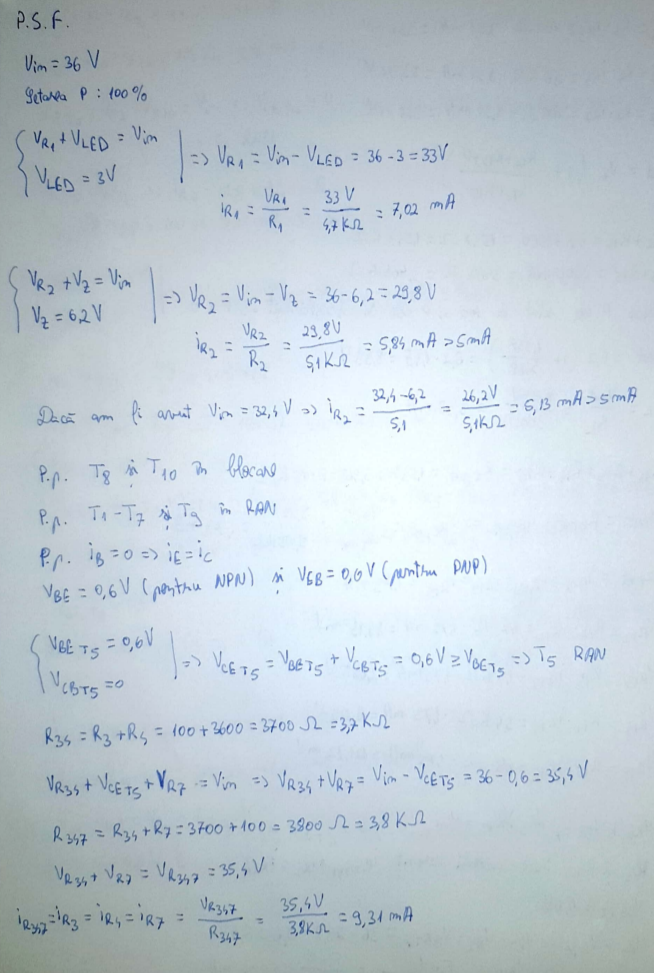 P.S.F.
Vin = 36 V
Setarea P : 100%
{ VR1 + VLED = Vin
VLED = 3V | => VR1 = Vin - VLED = 36 - 3 = 33V
iR1 = VR1/R1 = 33 V/4,7 KΩ = 7,02 mA
{ VR2 + VZ = Vin
VZ = 6,2 V | => VR2 = Vin - VZ = 36 - 6,2 = 29,8 V
iR2 = VR2/R2 = 29,8V/5,1 KΩ = 5,84 mA > 5 mA
Dacă am fi avut Vin = 32,4 V => iR2 = 32,4 - 6,2/5,1 = 26,2V/5,1KΩ = 5,13 mA > 5 mA
P.p. T8 și T10 în blocare
P.p. T1 - T7 și T9 în RAN
P.p. iB = 0 => iE = iC
VBE = 0,6 V (pentru NPN) și VEB = 0,6 V (pentru PNP)
{ VBE T5 = 0,6 V
VCB T5 = 0 | => VCE T5 = VBE T5 + VCB T5 = 0,6 V ≥ VBE T5 => T5 RAN
R34 = R3 + R4 = 100 + 3600 = 3700 Ω = 3,7 KΩ
VR34 + VCE T5 + VR7 = Vin => VR34 + VR7 = Vin - VCE T5 = 36 - 0,6 = 35,4 V
R347 = R34 + R7 = 3700 + 100 = 3800 Ω = 3,8 KΩ
VR34 + VR7 = VR347 = 35,4 V
iR347 = iR3 = iR4 = iR7 = VR347/R347 = 35,4V/3,8KΩ = 9,31 mA